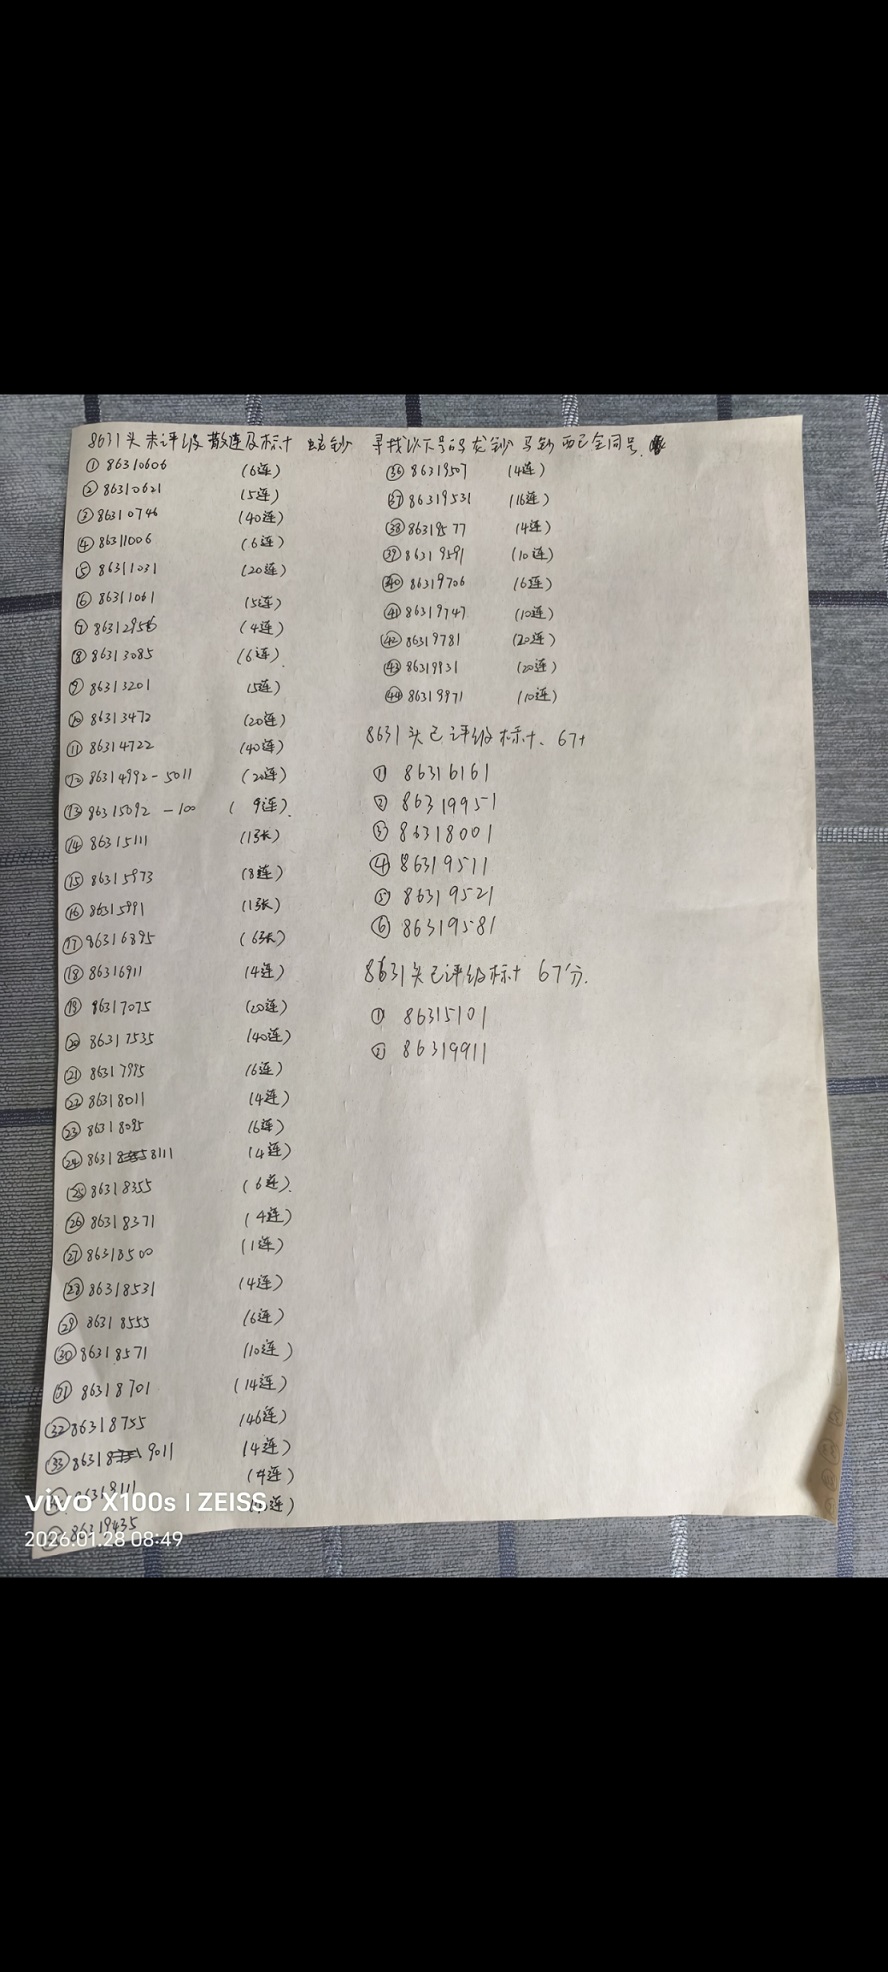 8631头未评级散连及标十 蛇钞 寻找以下号码龙钞马钞配全同号.
① 86310606 (6连)
② 86310621 (5连)
③ 86310746 (40连)
④ 86311006 (6连)
⑤ 86311031 (20连)
⑥ 86311061 (5连)
⑦ 86312956 (4连)
⑧ 86313085 (6连)
⑨ 86313201 (5连)
⑩ 86313472 (20连)
⑪ 86314722 (40连)
⑫ 86314992-5011 (20连)
⑬ 86315092-100 (9连)
⑭ 86315111 (1张)
⑮ 86315973 (8连)
⑯ 86315991 (1张)
⑰ 86316895 (6张)
⑱ 86316911 (4连)
⑲ 86317075 (20连)
⑳ 86317535 (40连)
㉑ 86317995 (6连)
㉒ 86318011 (4连)
㉓ 86318095 (6连)
㉔ 86318111 (4连)
㉕ 86318355 (6连)
㉖ 86318371 (4连)
㉗ 86318500 (1连)
㉘ 86318531 (4连)
㉙ 86318555 (6连)
㉚ 86318571 (10连)
㉛ 86318701 (14连)
㉜ 86318755 (46连)
㉝ 86319011 (4连)
(4连)
86319435
㊱ 86319507 (4连)
㊲ 86319531 (16连)
㊳ 86319577 (4连)
㊴ 86319591 (10连)
㊵ 86319706 (6连)
㊶ 86319747 (10连)
㊷ 86319781 (20连)
㊸ 86319931 (20连)
㊹ 86319971 (10连)
8631头已评级标十、67+
① 86316161
② 86319951
③ 86318001
④ 86319511
⑤ 86319521
⑥ 86319581
8631头已评级标十 67分.
① 86315101
② 86319911
vivo X100s | ZEISS
2026.01.28 08:49